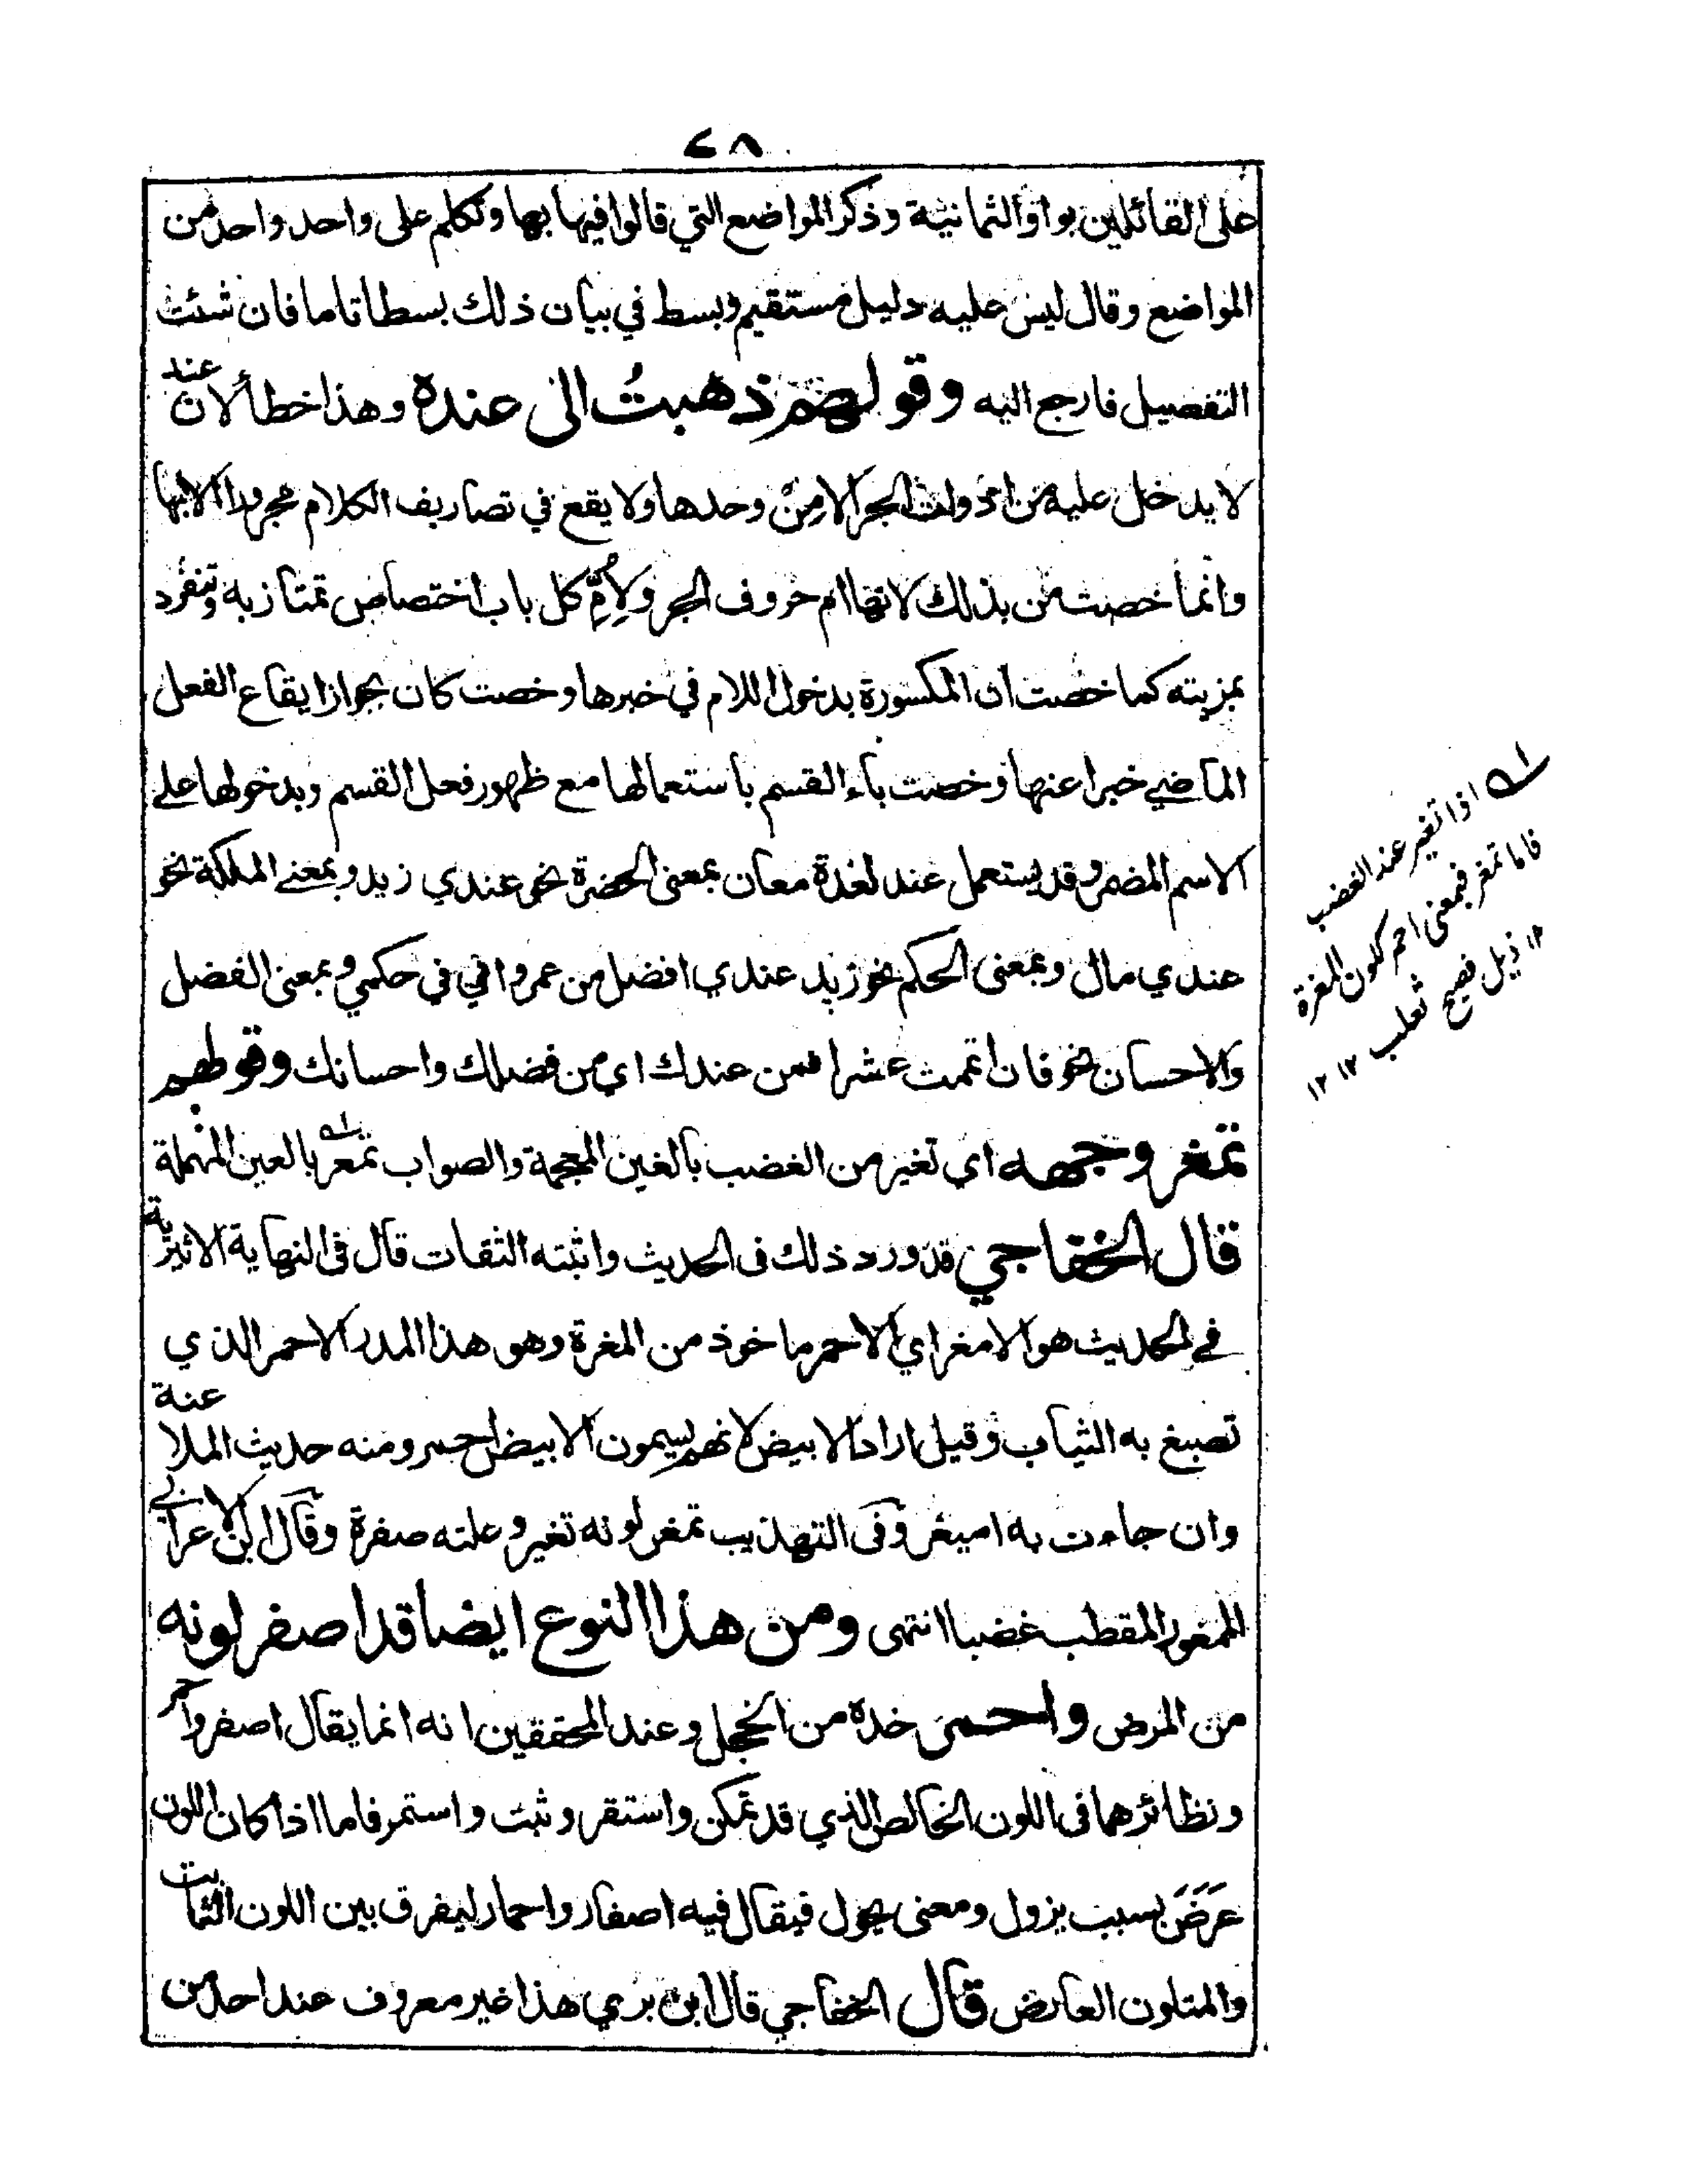 ٤٨
على القائلين بواو الثمانية وذكر المواضع التي قالوا فيها بها وتكلم على واحد واحد من
المواضع وقال ليس عليه دليل مستقيم وبسط في بيان ذلك بسطا تاما فان شئت
التفصيل فارجع اليه وقولهم ذهبتُ الى عنده وهذا خطأ لان عند
لا يدخل عليه من ادوات الجر الا مِنْ وحدها ولا يقع في تصاريف الكلام مجرورا الا بها
وانما خصت من بذلك لانها ام حروف الجر ولأُمِّ كل باب اختصاص تمتاز به وتنفرد
بمزيته كما خصت ان المكسورة بدخول اللام في خبرها وخصت كان بجواز ايقاع الفعل
الماضي خبرا عنها وخصت باء القسم باستعمالها مع ظهور فعل القسم وبدخولها على
الاسم المضمر وقد يستعمل عند لعدة معان بمعنى الحضرة نحو عندي زيد وبمعنى الملكة نحو
عندي مال وبمعنى الحكم نحو زيد عندي افضل من عمرو اي في حكمي وبمعنى الفضل
والاحسان نحو فان اتممت عشرا فمن عندك اي من فضلك واحسانك وقولهم
تمغر وجهه اي تغير من الغضب بالغين المعجمة والصواب تمعر بالعين المهملة
قال الخفاجي قد ورد ذلك فى الحديث واثبته الثقات قال فى النهاية الاثيرية
في الحديث هو الامغر اي الاحمر ماخوذ من المغرة وهو هذا المدر الاحمر الذي
تصبغ به الثياب وقيل اراد الابيض لانهم يسمون الابيض احمر ومنه حديث الملاعنة
وان جاءت به اميغر وفى التهذيب تمغر لونه تغير وعلته صفرة وقال ابن الاعرابي
الممغور المقطب غضبا انتهى ومن هذا النوع ايضا قد اصفر لونه
من المرض واحمر خده من الخجل وعند المحققين انه انما يقال اصفر واحمر
ونظائرهما فى اللون الخالص الذي قد تمكن واستقر وثبت واستمر فاما اذا كان اللون
عَرَضَ بسبب يزول ومعنى يحول فيقال فيه اصفار واحمار ليفرق بين اللون الثابت
والمتلون العارض قال الخفاجي قال ابن بري هذا غير معروف عند احد من
اذا تغير عند الغضب
فاما تمغر فبمعنى احمر كلون المغرة
١٢ ذيل فصيح ثعلب ١٢ ١٢